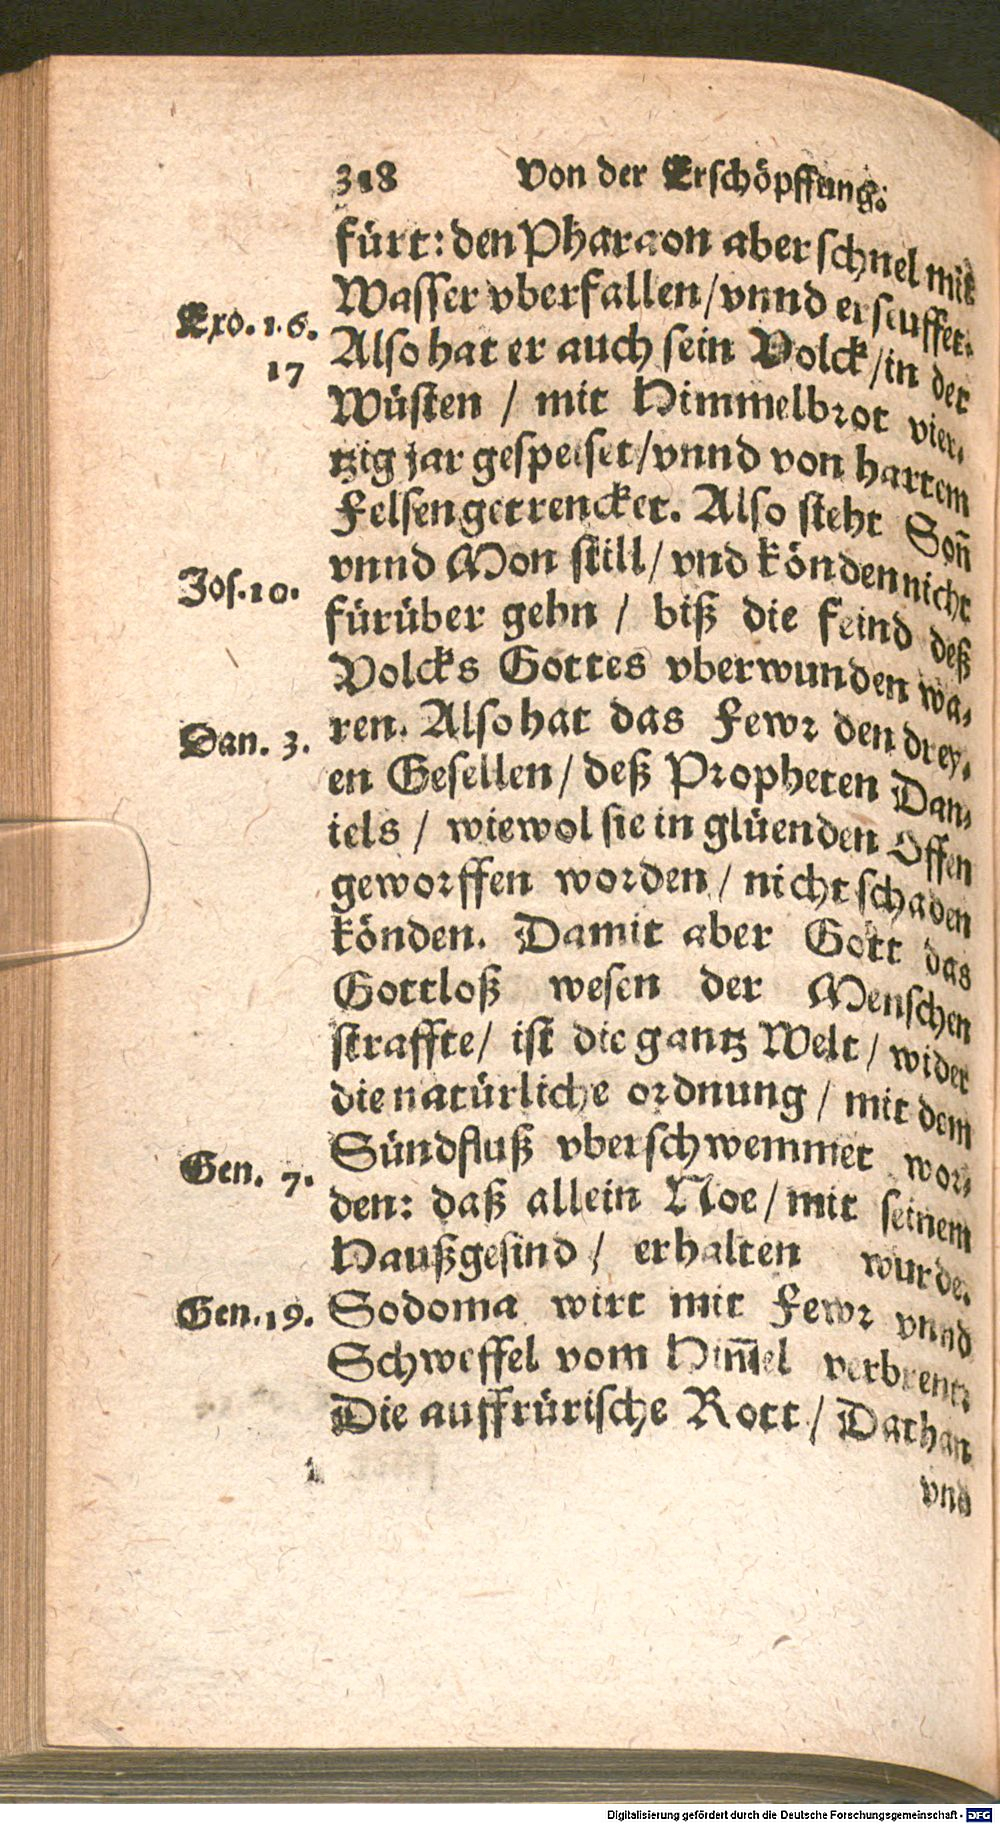 318 Von der Erschöpffung.
fürt: den Pharaon aber schnel mit
Wasser vberfallen/vnnd erseuffet.
Exo. 16.
17
Also hat er auch sein Volck/in der
Wüsten / mit Himmelbrot vier-
tzig jar gespeiset/vnnd von hartem
Felsen getrencket. Also steht Soñ
Jos. 10.
vnnd Mon still/ vnd könden nicht
fürüber gehn / biß die feind deß
Volcks Gottes vberwunden wa-
Dan. 3.
ren. Also hat das Fewr den drey-
en Gesellen/ deß Propheten Dan-
iels / wiewol sie in glüenden Offen
geworffen worden/ nicht schaden
könden. Damit aber Gott das
Gottloß wesen der Menschen
straffte/ ist die gantz Welt/ wider
die natürliche ordnung / mit dem
Gen. 7.
Sündfluß vberschwemmet wor-
den: daß allein Noe/ mit seinem
Haußgesind / erhalten wurde.
Gen. 19.
Sodoma wirt mit Fewr vnnd
Schweffel vom Him̃el verbrent:
Die auffrürische Rott / Dathan
vnd
Digitalisierung gefördert durch die Deutsche Forschungsgemeinschaft - DFG